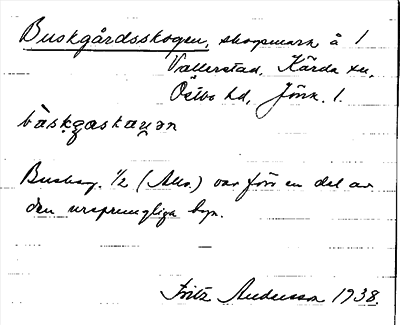 Buskgårdsskogen, skogsmark å 1
Vallerstad, Kärda sn,
Östbo hd, Jönk. l.
bàskgaskaɡən
Buskag. 1/2 (Allo.) var förr en del av
den ursprungliga byn.
Fritz Andersson 1938.